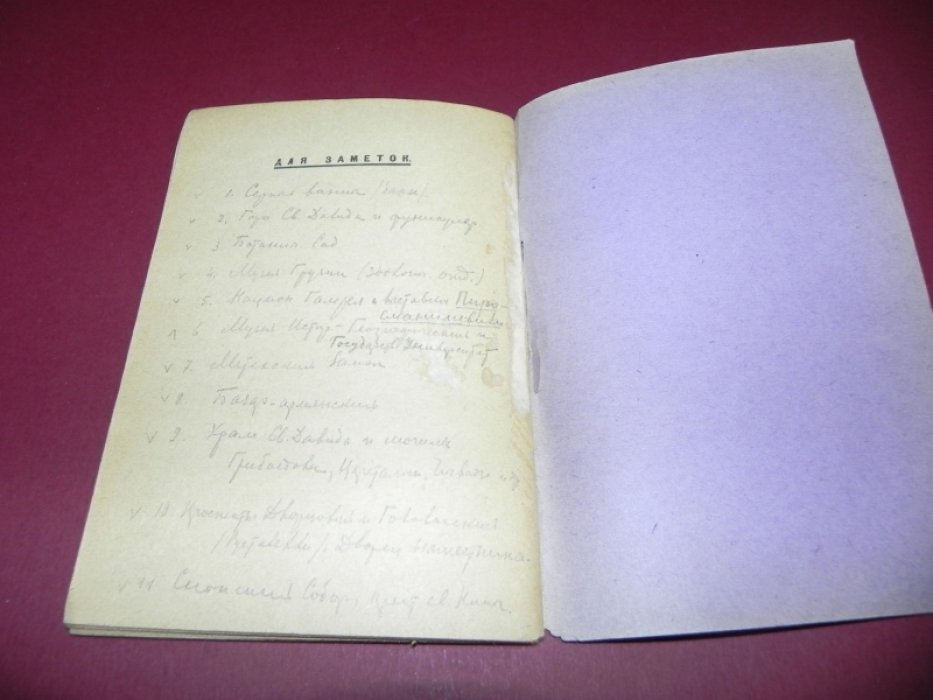 ДЛЯ ЗАМЕТОК.
v 1. Серные ванны (бани).
v 2. Гора Св. Давида и фуникулер
v 3. Ботанич. Сад
v 4. Музей Грузии (зоологич. отд.)
v 5. Национ Галерея и выставка Пиро-
сманишвили
6. Музей Истор-Географический и
Государств. Университет
v 7. Метехский Замок
v 8. Базар-армянский
v 9. Храм Св. Давида и могилы
Грибоедова, Церетели,
v 10 Дворцовый и Головинский
/Руставели/. Дворец наместника.
v 11 Сионский Собор, крест св. Нины.